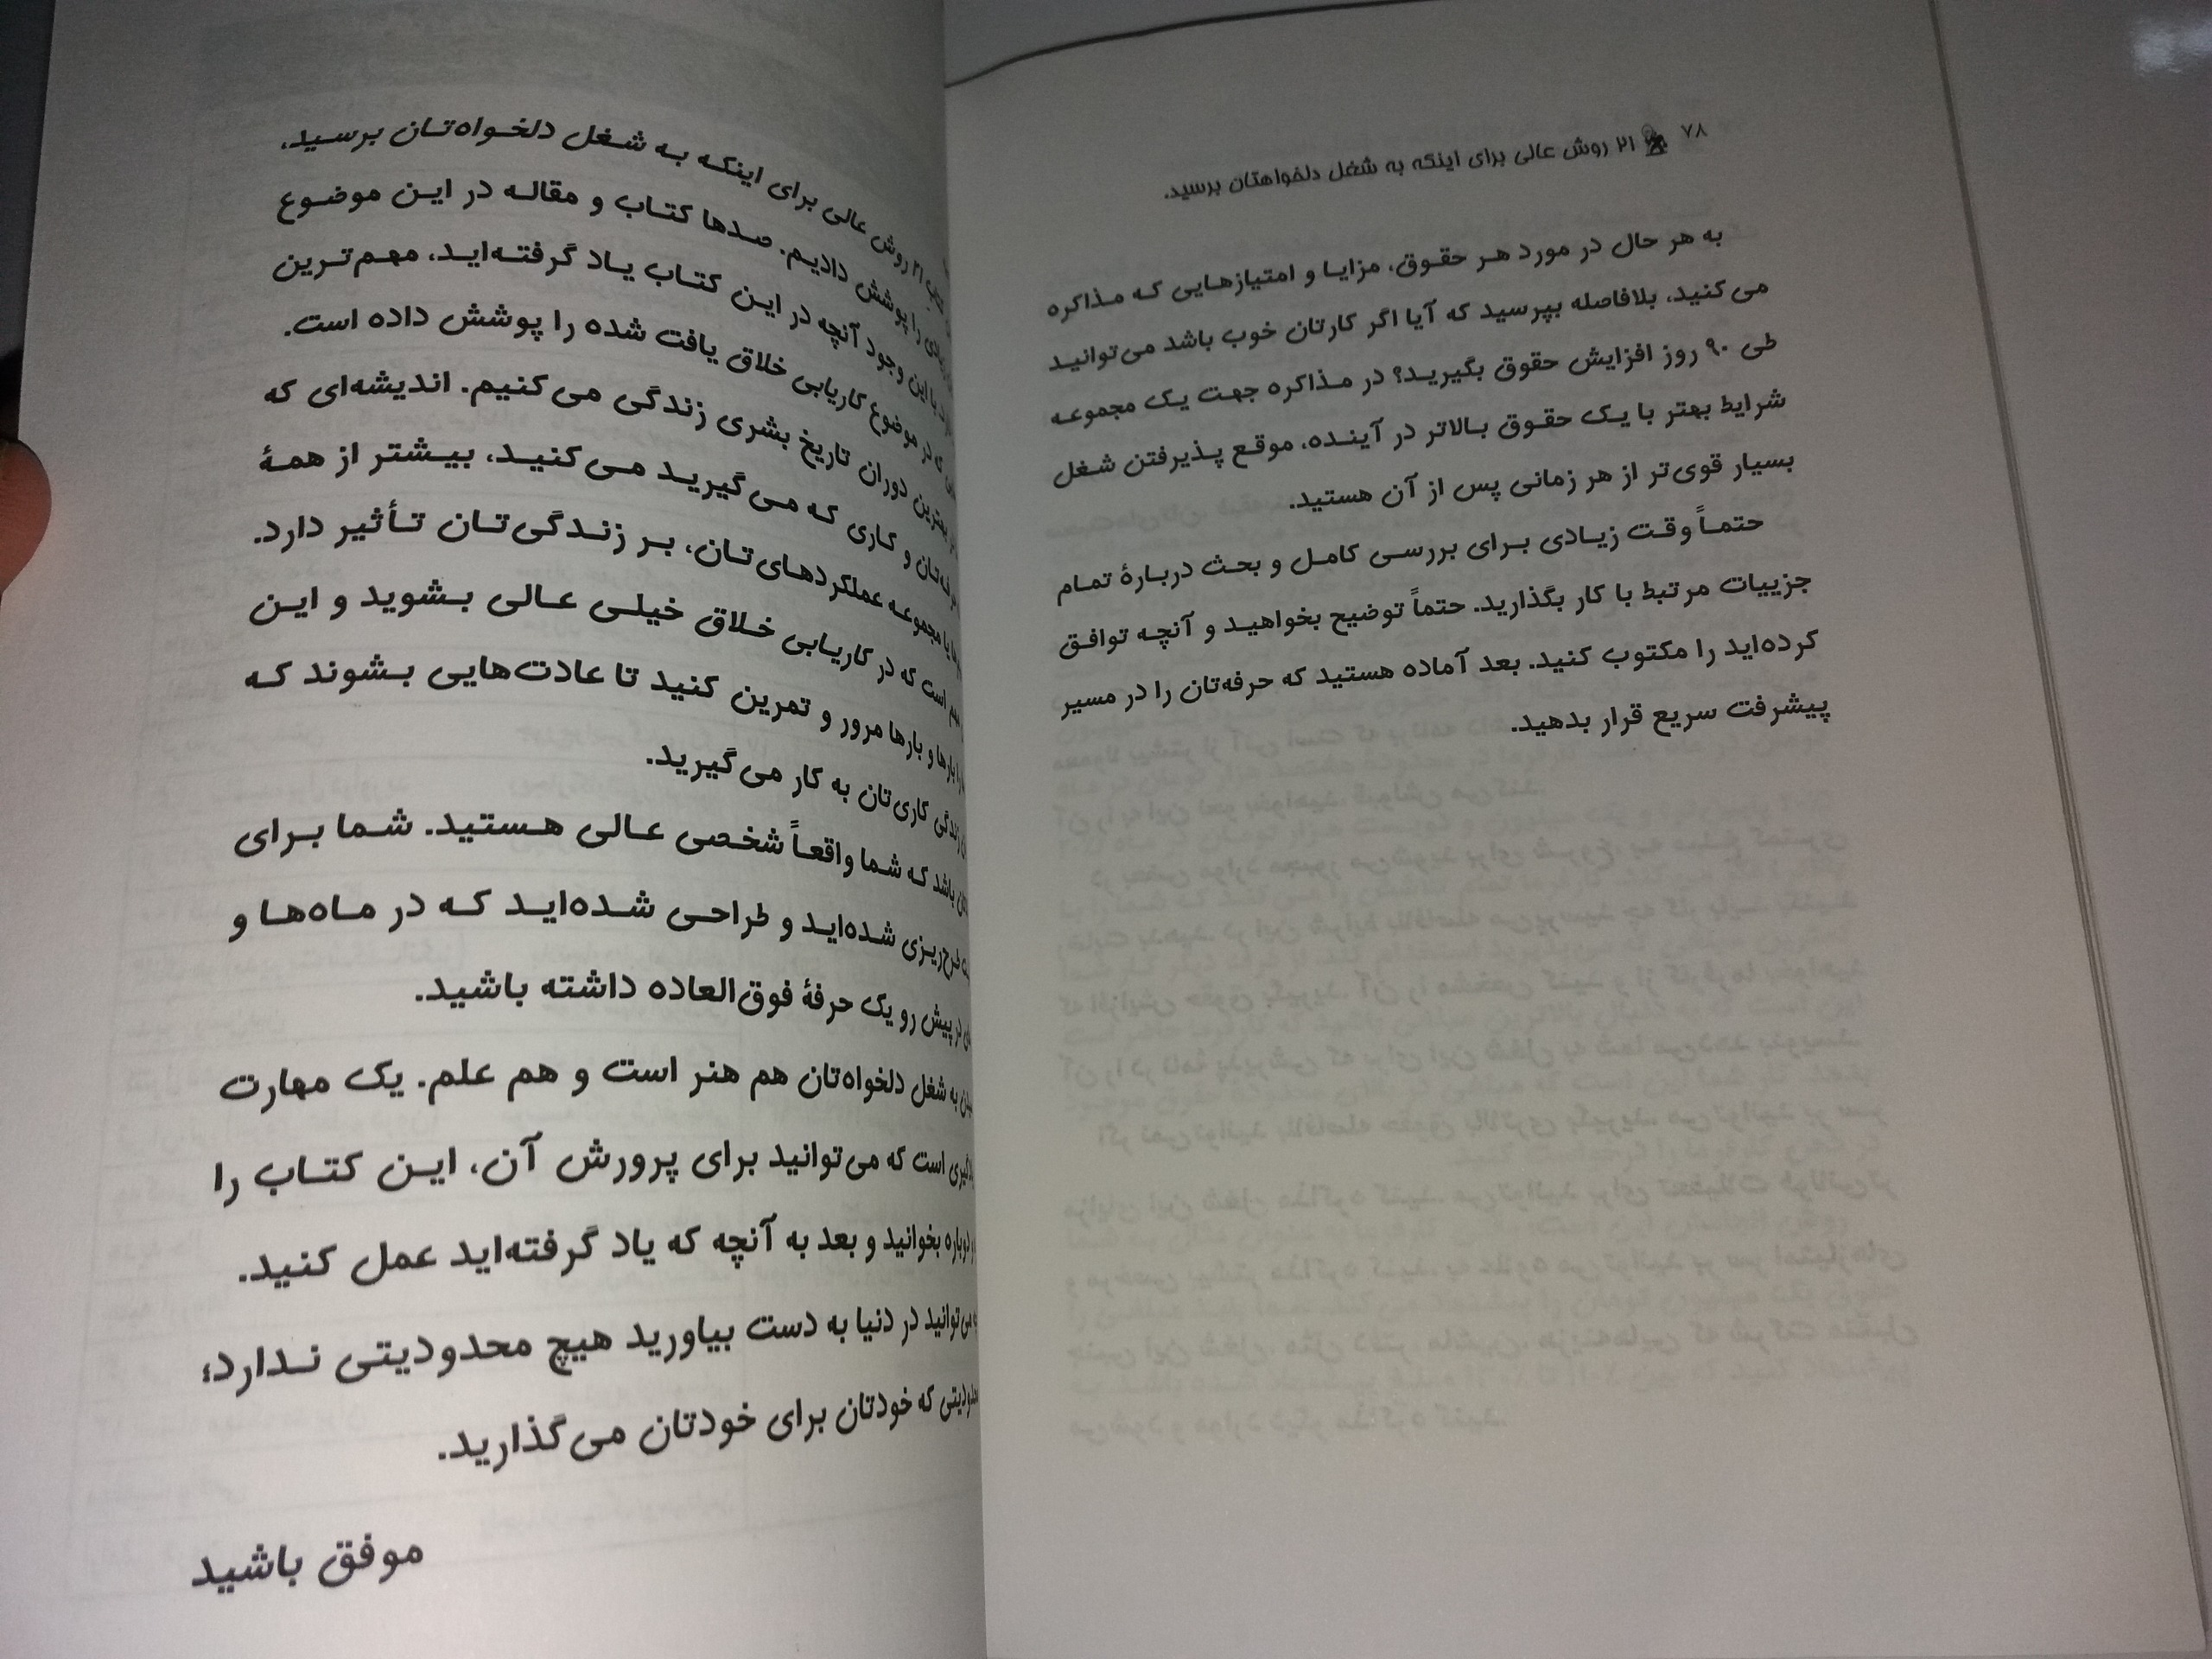 ۷۸ ۲۱ روش عالی برای اینکه به شغل دلخواهتان برسید.
به هر حال در مورد هر حقوق، مزایا و امتیازهایی که مذاکره
می‌کنید، بلافاصله بپرسید که آیا اگر کارتان خوب باشد می‌توانید
طی ۹۰ روز افزایش حقوق بگیرید؟ در مذاکره جهت یک مجموعه
شرایط بهتر با یک حقوق بالاتر در آینده، موقع پذیرفتن شغل
بسیار قوی‌تر از هر زمانی پس از آن هستید.
حتماً وقت زیادی برای بررسی کامل و بحث دربارهٔ تمام
جزییات مرتبط با کار بگذارید. حتماً توضیح بخواهید و آنچه توافق
کرده‌اید را مکتوب کنید. بعد آماده هستید که حرفه‌تان را در مسیر
پیشرفت سریع قرار بدهید.
۲۱ روش عالی برای اینکه به شغل دلخواه‌تان برسید،
را پوشش دادیم. صدها کتاب و مقاله در این موضوع
با این وجود آنچه در این کتاب یاد گرفته‌اید، مهم‌ترین
در موضوع کاریابی خلاق یافت شده را پوشش داده است.
بهترین دوران تاریخ بشری زندگی می‌کنیم. اندیشه‌ای که
و کاری که می‌گیرید می‌کنید، بیشتر از همهٔ
مجموعه عملکردهای‌تان، بر زندگی‌تان تأثیر دارد.
است که در کاریابی خلاق خیلی عالی بشوید و این
بارها و بارها مرور و تمرین کنید تا عادت‌هایی بشوند که
زندگی کاری‌تان به کار می‌گیرید.
باشد که شما واقعاً شخصی عالی هستید. شما برای
طرح‌ریزی شده‌اید و طراحی شده‌اید که در ماه‌ها و
در پیش رو یک حرفهٔ فوق‌العاده داشته باشید.
به شغل دلخواه‌تان هم هنر است و هم علم. یک مهارت
است که می‌توانید برای پرورش آن، این کتاب را
دوباره بخوانید و بعد به آنچه که یاد گرفته‌اید عمل کنید.
می‌توانید در دنیا به دست بیاورید هیچ محدودیتی ندارد؛
که خودتان برای خودتان می‌گذارید.
موفق باشید